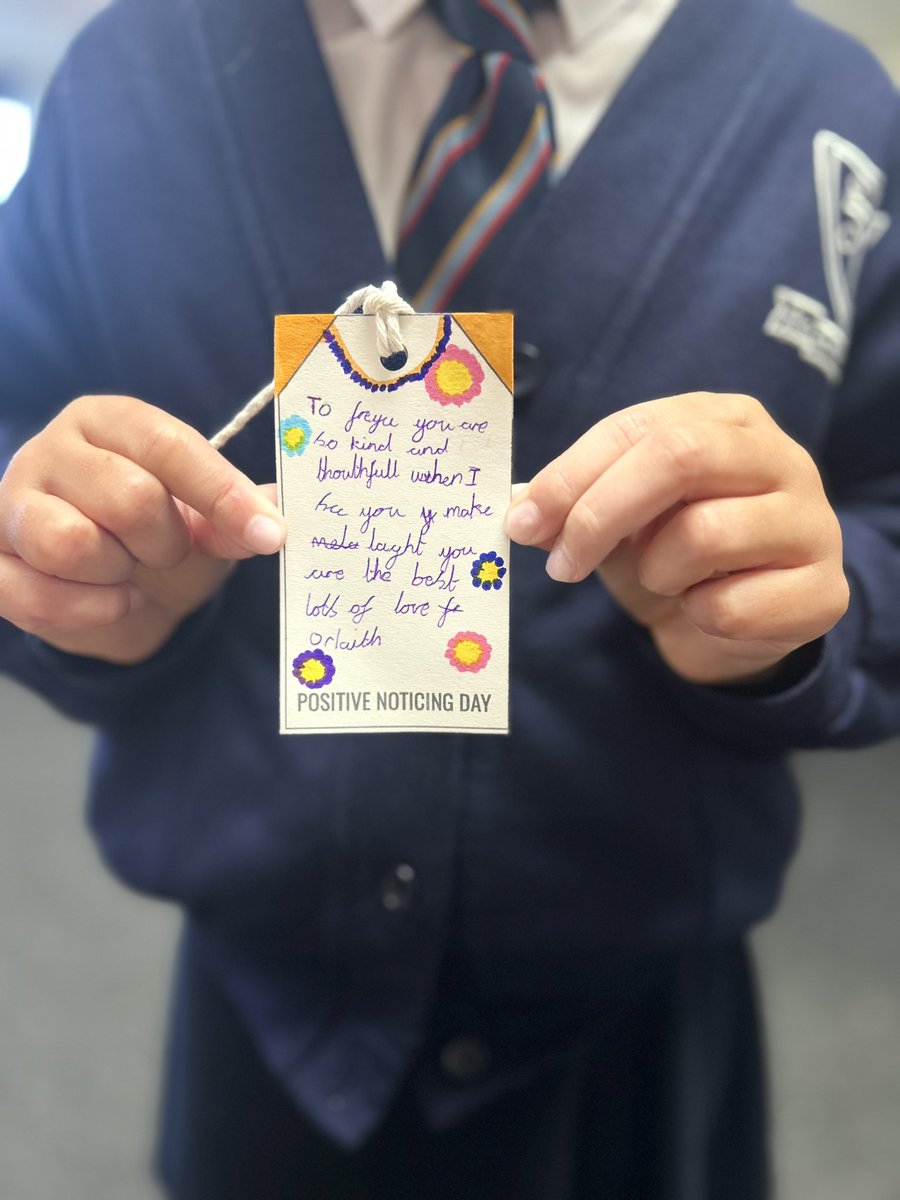 To freya you are
so kind and
thouthfull wshen I
see you y make
laught you
are the best
lots of love fr
orlaith
POSITIVE NOTICING DAY